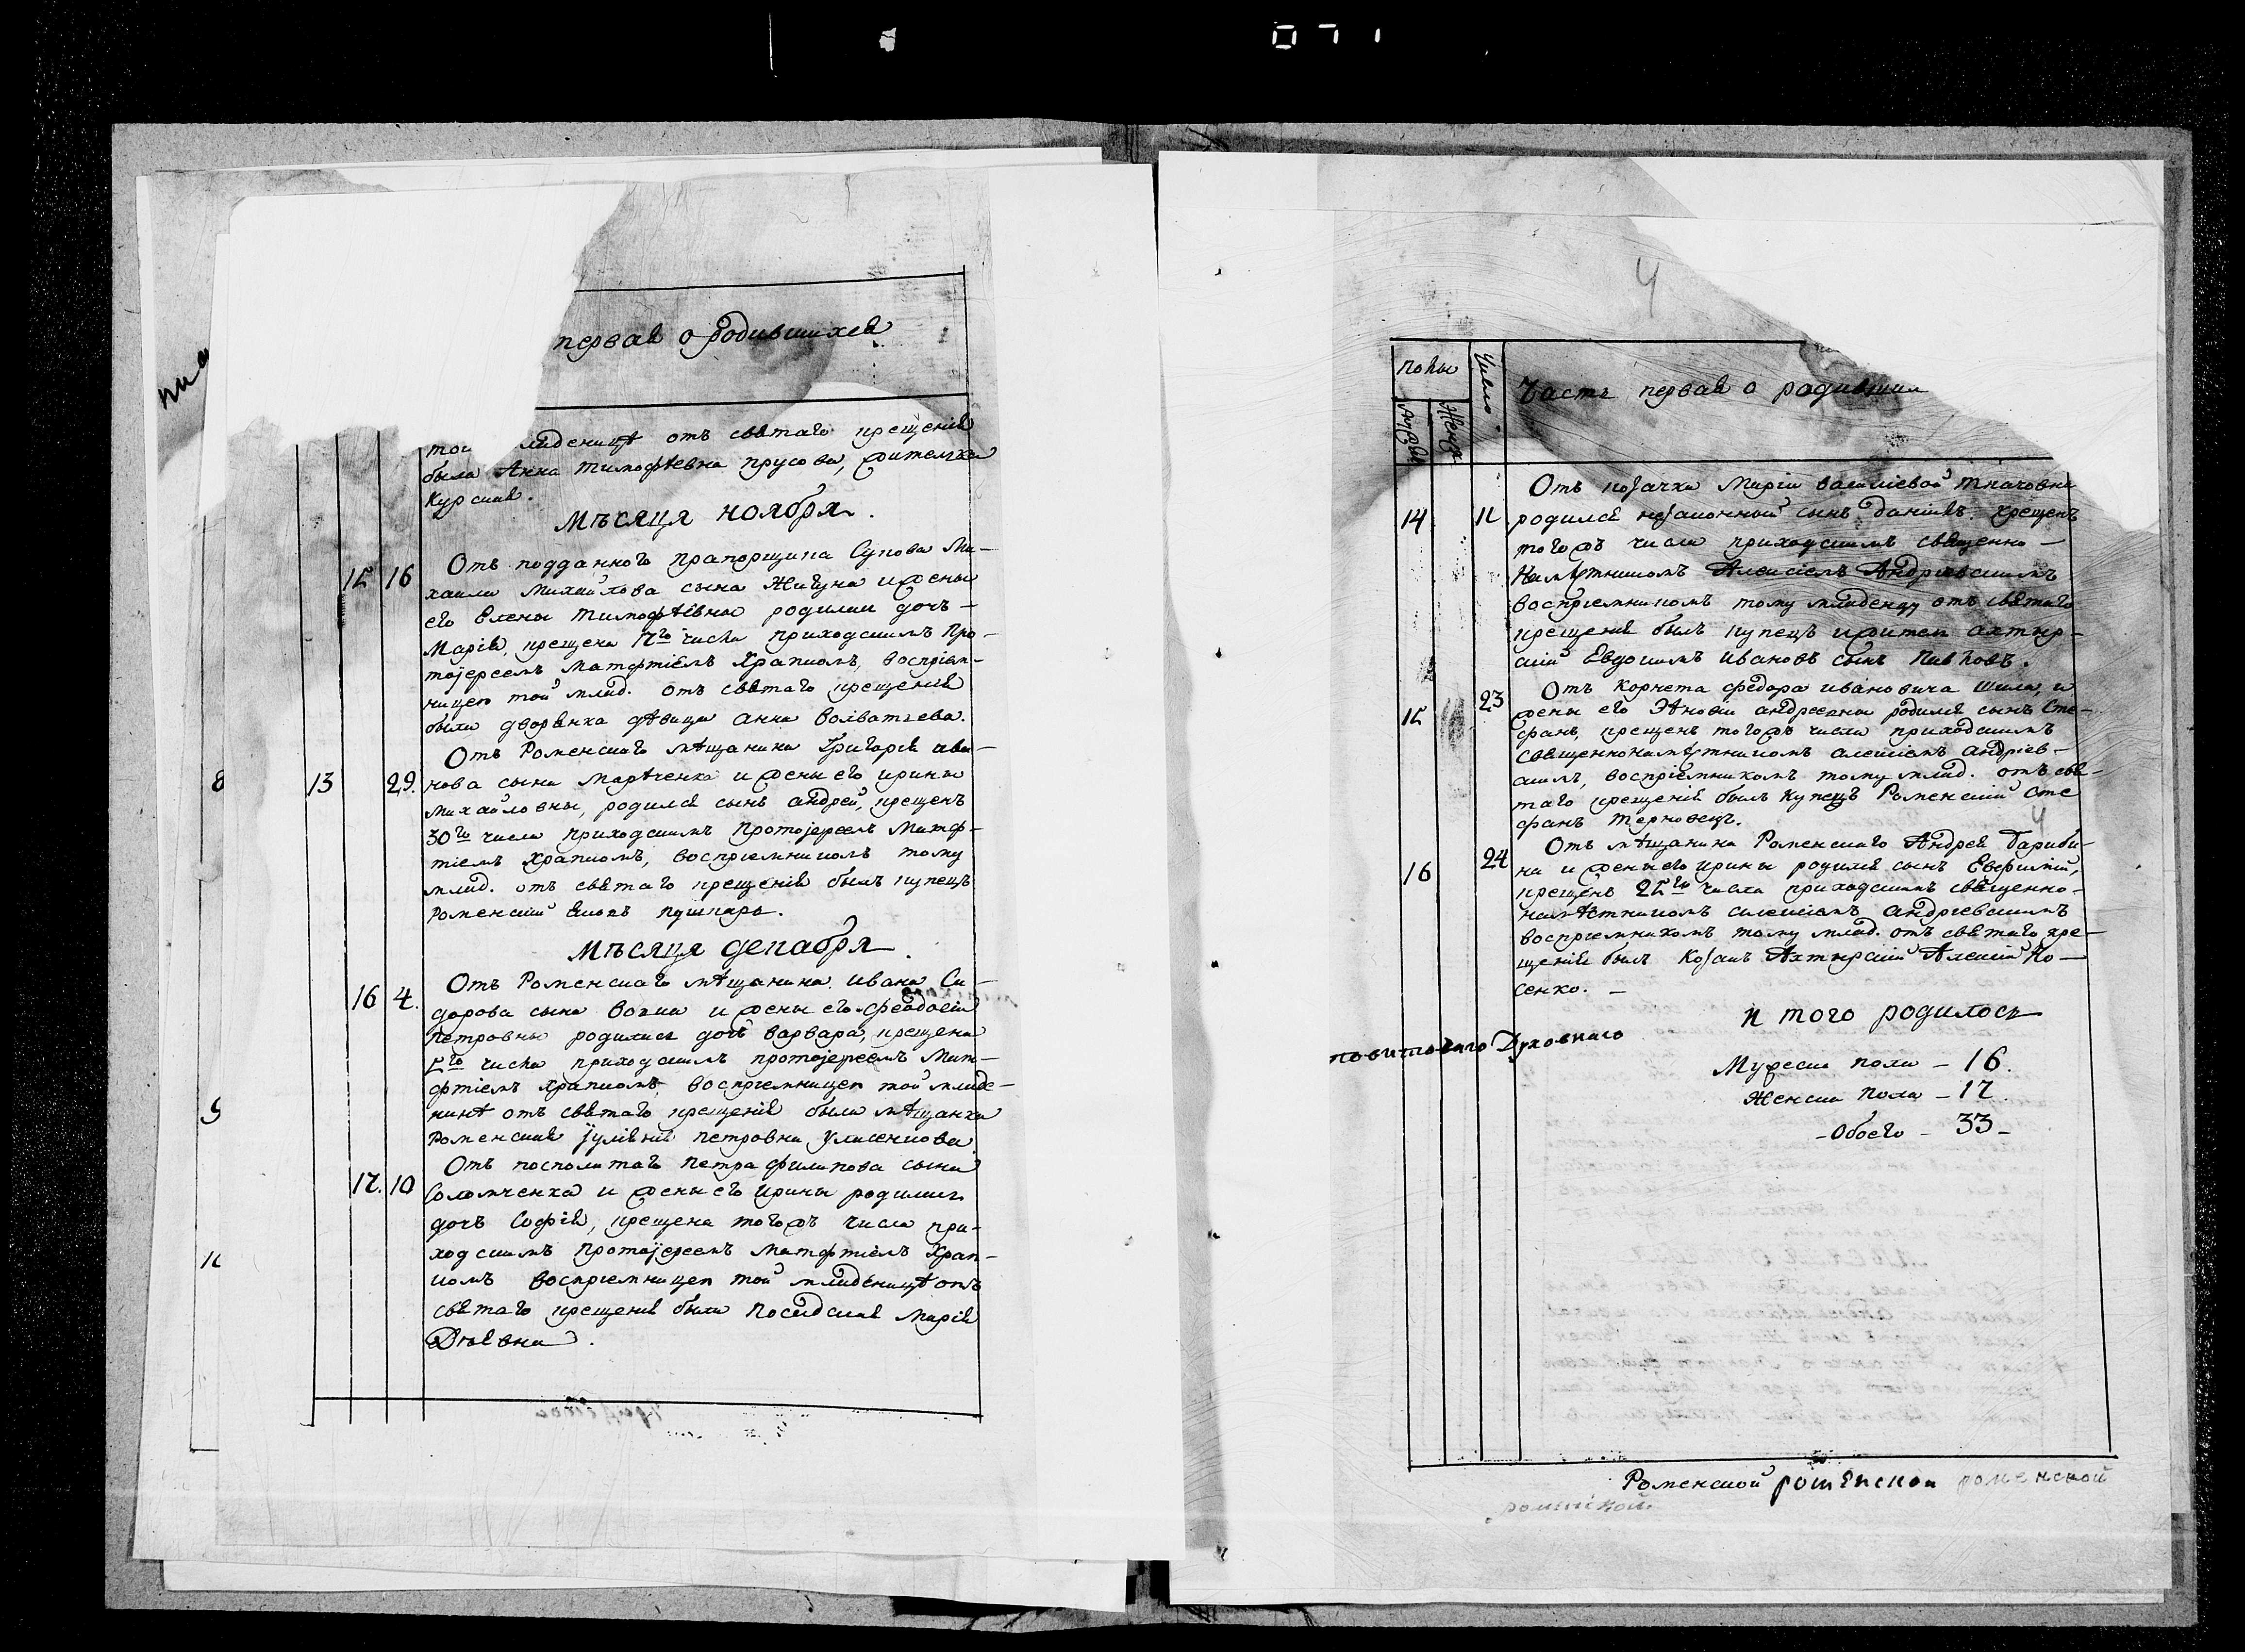 071
первая о родившихся
той младеницѣ отъ святаго крещенія
была Анна Тимофѣевна Прусова, жителка
Курская.
Мѣсяця ноября.
15 16 Отъ подданного прапорщика Сукова Ми-
хаила Михайлова сына Жигуна и жены
его Елены Тимофѣевны родилась дочь
Марія, крещена 17го числа приходскимъ про-
тоіереемъ Матфіемъ Храпкомъ, воспріем-
ницею той млад. отъ святаго крещенія
была дворянка дѣвица Анна
Отъ Роменскаго мѣщанина Григорія ива-
8 13 29. нова сына Марченка и жены его Ирины
Михайловны, родился сынъ Андрей, крещенъ
30го числа приходскимъ протоіереемъ Матф-
тіемъ Храпкомъ, воспріемникомъ тому
млад. отъ святаго крещенія былъ купецъ
роменскій Пушкарь.
Мѣсяця декабря.
Отъ Роменскаго мѣщанина Ивана Си-
16 4. дорова сына Вовка и жены его Феодосіи
Петровны родилась дочь Варвара, крещена
5го числа приходскимъ протоіереемъ Мат-
фтіемъ Храпкомъ, воспріемницею той младе-
ницѣ отъ святаго крещенія была мѣщанка
Роменская Іуліянія Петровна
9 Отъ посполитаго Петра Филипова сына
17. 10 Соломченка и жены его Ирины родилась
дочь Софія, крещена тогожъ числа при-
ходскимъ протоіереемъ Матфтіемъ Храп-
комъ воспріемницею той младеницѣ отъ
святаго крещенія была Марія
4
Полы Число Часть первая о родивших
Мужск Женск
Отъ козачки Маріи Василіевой Ткачовны
14 11 родился незаконный сынъ Даніилъ. крещенъ
тогожъ числа приходскимъ священно-
Намѣстникомъ Алексіемъ Андріевскимъ
воспріемникомъ тому младенцу отъ святаго
крещенія былъ купецъ и житель ахтыр-
скій Евдокимъ Ивановъ сынъ Павловъ.
23 Отъ корнета Федора Ивановича Шила, и
15 жены его Зѣновіи Андреевны родился сынъ Сте-
фанъ, крещенъ тогожъ числа приходскимъ
священнонамѣстникомъ Алексіемъ Андріев-
скимъ, воспріемникомъ тому млад. отъ свя-
таго крещенія былъ купецъ Роменскій Сте
фанъ Терновецъ. 4
Отъ мѣщанина Роменскаго Андрея Гариби-
16 24 на и жены его Ирины родился сынъ Евфимій,
крещенъ 25го числа приходскимъ священно-
намѣстникомъ Алексіемъ Андріевскимъ
воспріемникомъ тому млад. отъ святаго кре-
щенія былъ козакъ Ахтирскій Алексій Ко-
сенко.
И того родилось
повитоваго Духовнаго
Мужеска пола - 16.
Женска пола - 17.
- Обоего - 33 -
Роменской роменской роменской
роменской